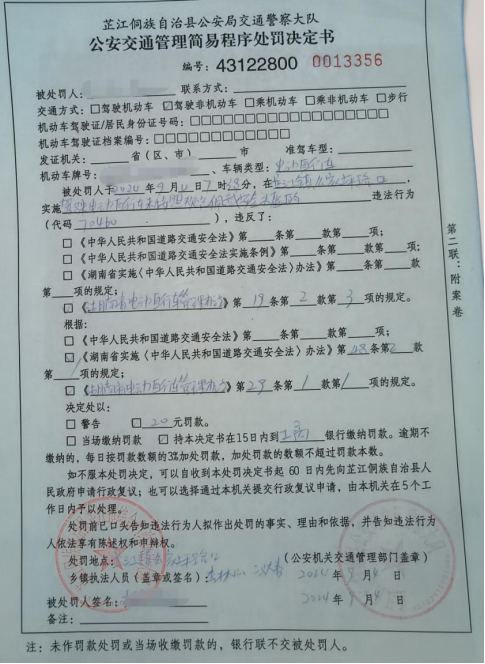 芷江侗族自治县公安局交通警察大队
公安交通管理简易程序处罚决定书
编号：43122800 0013356
被处罚人： 联系方式：
交通方式：☐驾驶机动车 ☑驾驶非机动车 ☐乘机动车 ☐乘非机动车 ☐步行
机动车驾驶证/居民身份证号码：☐☐☐☐☐☐☐☐☐☐☐☐☐☐☐☐☐☐
机动车驾驶证档案编号：☐☐☐☐☐☐☐☐☐☐☐☐
发证机关： 省（区、市） 市 准驾车型：
机动车牌号： 、车辆类型：电动自行车
被处罚人于2024年9月4日7时38分，在
实施 违法行为
（代码70460），违反了：
☐《中华人民共和国道路交通安全法》第 条第 款第 项；
☐《中华人民共和国道路交通安全法实施条例》第 条第 款第 项；
☐《湖南省实施〈中华人民共和国道路交通安全法〉办法》第 条第 款
第 项的规定；
☑《湖南省电动自行车管理办法》第19条第2款第3项的规定。
根据：
☐《中华人民共和国道路交通安全法》第 条第 款第 项；
☑《湖南省实施〈中华人民共和国道路交通安全法〉办法》第 条第 款
第 项的规定；
☑《湖南省电动自行车管理办法》第29条第1款第1项的规定。
决定处以：
☐ 警告 ☐ 20元罚款。
☐ 当场缴纳罚款 ☑ 持本决定书在15日内到工商银行缴纳罚款。逾期不
缴纳的，每日按罚款数额的3%加处罚款，加处罚款的数额不超过罚款本数。
如不服本处罚决定，可以自收到本处罚决定书起60日内先向芷江侗族自治县人
民政府申请行政复议；也可以选择通过本机关提交行政复议申请，由本机关在5个工
作日内予以处理。
处罚前已口头告知违法行为人拟作出处罚的事实、理由和依据，并告知违法行为
人依法享有陈述权和申辩权。
处罚地点： （公安机关交通管理部门盖章）
乡镇执法人员（盖章或签名）： 2024年9月4日
被处罚人签名： 2024年9月4日
备注：
注：未作罚款处罚或当场收缴罚款的，银行联不交被处罚人。
第二联：附案卷